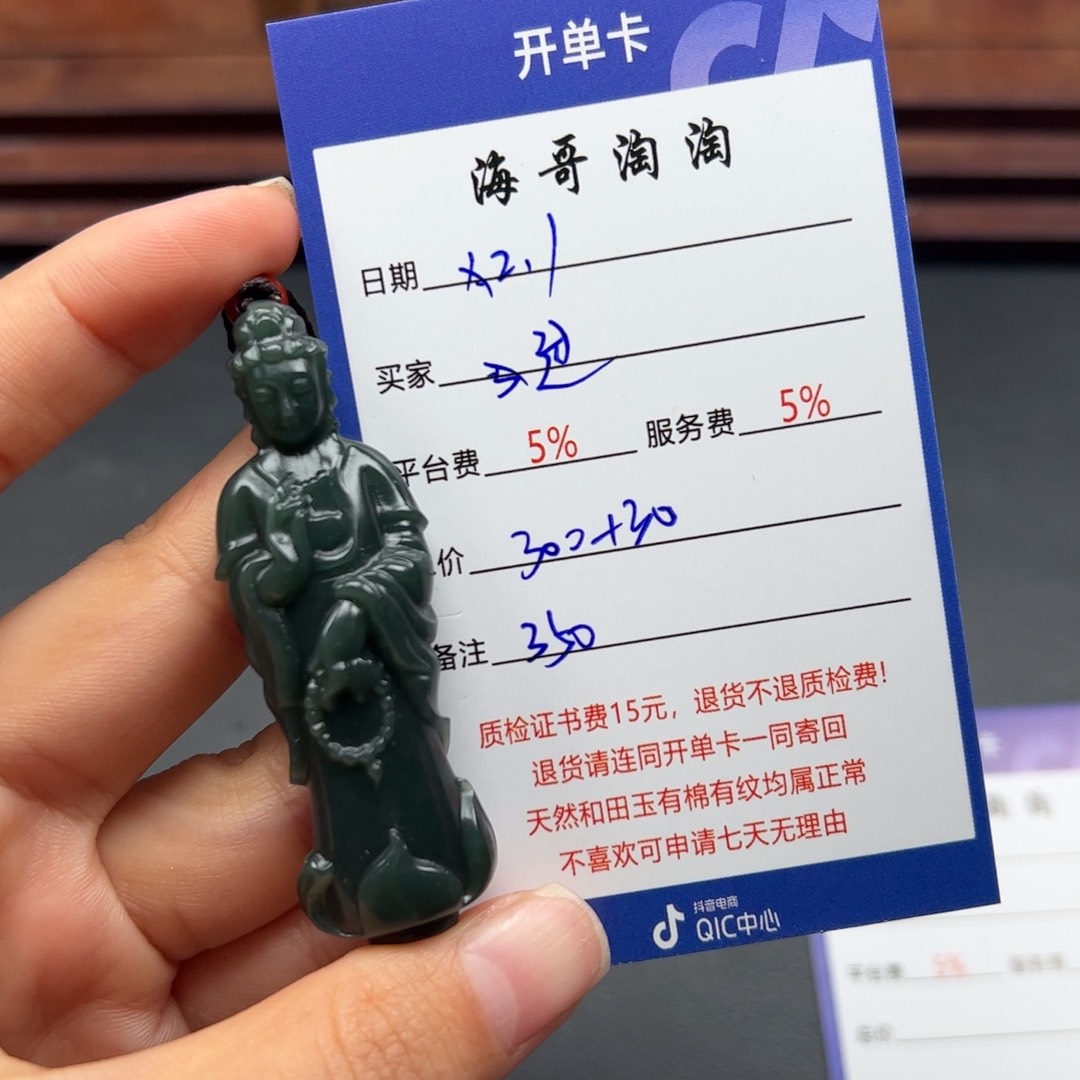 开单卡
海哥淘淘
日期 x2.1
买家
平台费 5% 服务费 5%
价 300+30
备注 350
质检证书费15元，退货不退质检费！
退货请连同开单卡一同寄回
天然和田玉有棉有纹均属正常
不喜欢可申请七天无理由
抖音电商
QIC中心
平台费 5%